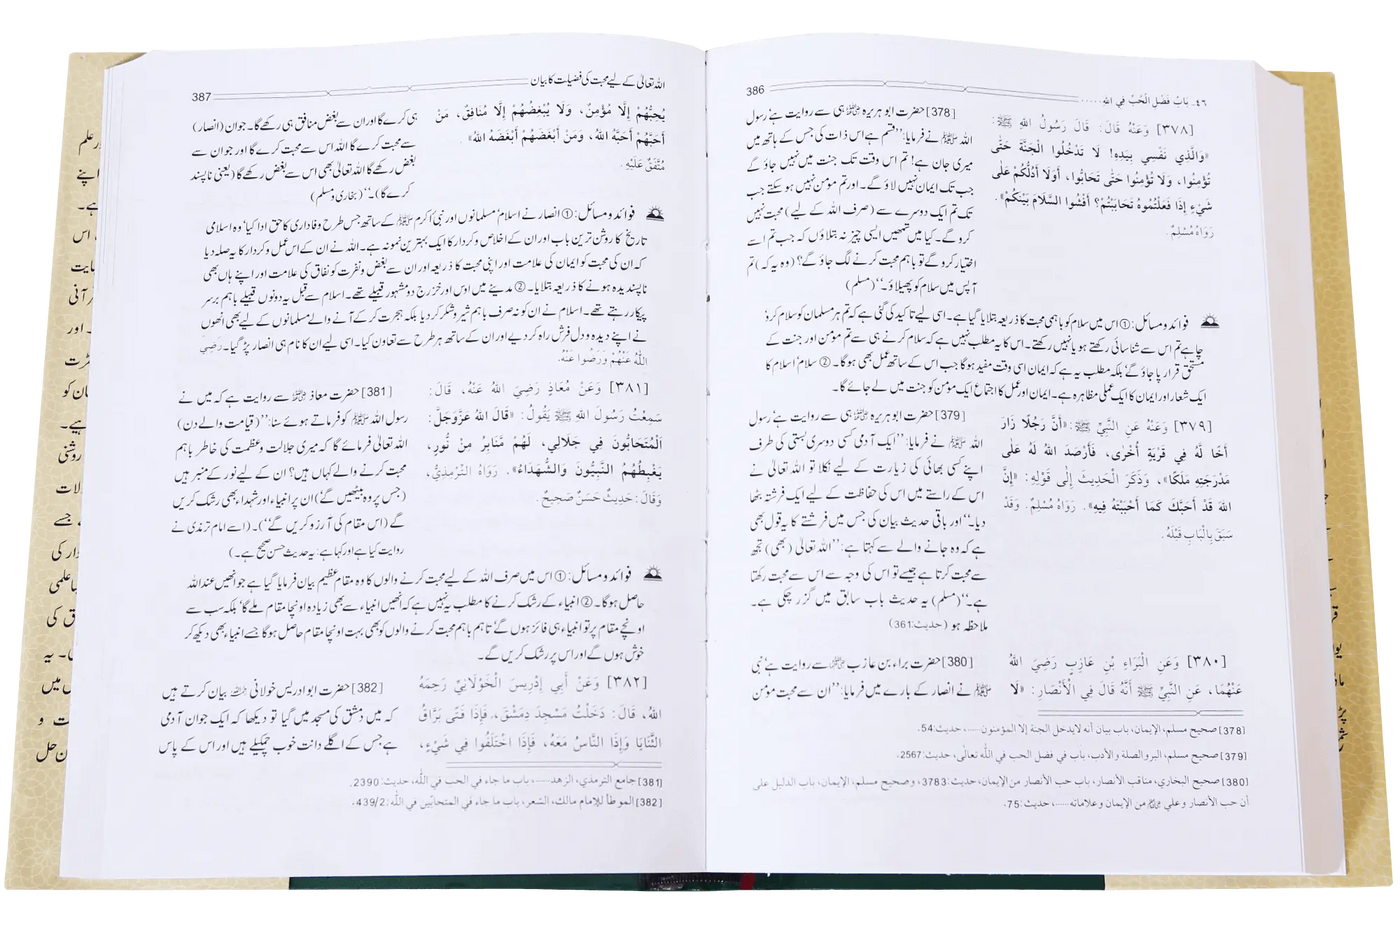 386
٤٦۔ بَابُ فَضْلِ الْحُبِّ فِي اللهِ .....
[٣٧٨] وَعَنْهُ قَالَ: قَالَ رَسُولُ اللهِ ﷺ:
«وَالَّذِي نَفْسِي بِيَدِهِ! لَا تَدْخُلُوا الْجَنَّةَ حَتَّى
تُؤْمِنُوا، وَلَا تُؤْمِنُوا حَتَّى تَحَابُّوا، أَوَلَا أَدُلُّكُمْ عَلَى
شَيْءٍ إِذَا فَعَلْتُمُوهُ تَحَابَبْتُمْ؟ أَفْشُوا السَّلَامَ بَيْنَكُمْ».
رَوَاهُ مُسْلِمٌ.
[378] حضرت ابوہریرہ ؓ ہی سے روایت ہے رسول
اللہ ﷺ نے فرمایا: ”قسم ہے اس ذات کی جس کے ہاتھ میں
میری جان ہے! تم اس وقت تک جنت میں نہیں جاؤ گے
جب تک ایمان نہیں لاؤ گے۔ اور تم مومن نہیں ہو سکتے جب
تک تم ایک دوسرے سے (صرف اللہ کے لیے) محبت نہیں
کرو گے۔ کیا میں تمھیں ایسی چیز نہ بتلاؤں کہ جب تم اسے
اختیار کرو گے تو باہم محبت کرنے لگ جاؤ گے؟ (وہ یہ کہ) تم
آپس میں سلام کو پھیلاؤ۔“ (مسلم)
فوائد و مسائل: ① اس میں سلام کو باہمی محبت کا ذریعہ بتلایا گیا ہے۔ اسی لیے تاکید کی گئی ہے کہ تم ہر مسلمان کو سلام کرو
چاہے تم اس سے شناسائی رکھتے ہو یا نہیں رکھتے۔ اس کا یہ مطلب نہیں ہے کہ سلام کرنے ہی سے تم مومن اور جنت کے
مستحق قرار پا جاؤ گے‘ بلکہ مطلب یہ ہے کہ ایمان اسی وقت مفید ہوگا جب اس کے ساتھ عمل بھی ہوگا۔ ② سلام‘ اسلام کا
ایک شعار اور ایمان کا ایک عملی مظاہرہ ہے۔ ایمان اور عمل کا اجتماع ایک مومن کو جنت میں لے جائے گا۔
[٣٧٩] وَعَنْهُ عَنِ النَّبِيِّ ﷺ: «أَنَّ رَجُلًا زَارَ
أَخًا لَهُ فِي قَرْيَةٍ أُخْرَى، فَأَرْصَدَ اللهُ لَهُ عَلَى
مَدْرَجَتِهِ مَلَكًا»، وَذَكَرَ الْحَدِيثَ إِلَى قَوْلِهِ: «إِنَّ
اللهَ قَدْ أَحَبَّكَ كَمَا أَحْبَبْتَهُ فِيهِ». رَوَاهُ مُسْلِمٌ. وَقَدْ
سَبَقَ بِالْبَابِ قَبْلَهُ.
[379] حضرت ابوہریرہ ؓ ہی سے روایت ہے‘ رسول
اللہ ﷺ نے فرمایا: ”ایک آدمی کسی دوسری بستی کی طرف
اپنے کسی بھائی کی زیارت کے لیے نکلا تو اللہ تعالیٰ نے
اس کے راستے میں اس کی حفاظت کے لیے ایک فرشتہ بٹھا
دیا۔“ اور باقی حدیث بیان کی جس میں فرشتے کا یہ قول بھی
ہے کہ وہ جانے والے سے کہتا ہے: ”اللہ تعالیٰ (بھی) تجھ
سے محبت کرتا ہے جیسے تو اس کی وجہ سے اس سے محبت رکھتا
ہے۔“ (مسلم) یہ حدیث باب سابق میں گزر چکی ہے۔
ملاحظہ ہو (حدیث:361)
[٣٨٠] وَعَنِ الْبَرَاءِ بْنِ عَازِبٍ رَضِيَ اللهُ
عَنْهُمَا، عَنِ النَّبِيِّ ﷺ أَنَّهُ قَالَ فِي الْأَنْصَارِ: «لَا
[380] حضرت براء بن عازب ؓ سے روایت ہے‘ نبی
ﷺ نے انصار کے بارے میں فرمایا: ”ان سے محبت مومن
[378] صحيح مسلم، الإيمان، باب بيان أنه لايدخل الجنة إلا المؤمنون ....، حديث:54.
[379] صحيح مسلم، البر والصلة والأدب، باب في فضل الحب في الله تعالى، حديث:2567.
[380] صحيح البخاري، مناقب الأنصار، باب حب الأنصار من الإيمان، حديث:3783، وصحيح مسلم، الإيمان، باب الدليل على
أن حب الأنصار وعلي ؓ من الإيمان وعلاماته.....، حديث:75.
387
اللہ تعالیٰ کے لیے محبت کی فضیلت کا بیان
يُحِبُّهُمْ إِلَّا مُؤْمِنٌ، وَلَا يُبْغِضُهُمْ إِلَّا مُنَافِقٌ، مَنْ
أَحَبَّهُمْ أَحَبَّهُ اللهُ، وَمَنْ أَبْغَضَهُمْ أَبْغَضَهُ اللهُ».
مُتَّفَقٌ عَلَيْهِ.
ہی کرے گا اور ان سے بغض منافق ہی رکھے گا۔ جو ان (انصار)
سے محبت کرے گا اللہ اس سے محبت کرے گا اور جو ان سے
بغض رکھے گا اللہ تعالیٰ بھی اس سے بغض رکھے گا (یعنی ناپسند
کرے گا)۔“ (بخاری و مسلم)
فوائد و مسائل: ① انصار نے اسلام‘ مسلمانوں اور نبیٔ اکرم ﷺ کے ساتھ جس طرح وفاداری کا حق ادا کیا‘ وہ اسلامی
تاریخ کا روشن ترین باب اور ان کے اخلاص و کردار کا ایک بہترین نمونہ ہے۔ اللہ نے ان کے اس عمل و کردار کا یہ صلہ دیا
کہ ان کی محبت کو ایمان کی علامت اور اپنی محبت کا ذریعہ اور ان سے بغض و نفرت کو نفاق کی علامت اور اپنے ہاں بھی
ناپسندیدہ ہونے کا ذریعہ بتلایا۔ ② مدینے میں اوس اور خزرج دو مشہور قبیلے تھے۔ اسلام سے قبل یہ دونوں قبیلے باہم برسر
پیکار رہتے تھے۔ اسلام نے ان کو نہ صرف باہم شیروشکر کر دیا بلکہ ہجرت کر کے آنے والے مسلمانوں کے لیے بھی انھوں
نے اپنے دیدہ و دل فرش راہ کر دیے اور ان کے ساتھ ہر طرح سے تعاون کیا۔ اسی لیے ان کا نام ہی انصار پڑ گیا۔ رَضِيَ
اللهُ عَنْهُمْ وَرَضُوا عَنْهُ.
[٣٨١] وَعَنْ مُعَاذٍ رَضِيَ اللهُ عَنْهُ، قَالَ:
سَمِعْتُ رَسُولَ اللهِ ﷺ يَقُولُ: «قَالَ اللهُ عَزَّوَجَلَّ:
الْمُتَحَابُّونَ فِي جَلَالِي، لَهُمْ مَنَابِرُ مِنْ نُورٍ،
يَغْبِطُهُمُ النَّبِيُّونَ وَالشُّهَدَاءُ». رَوَاهُ التِّرْمِذِيُّ،
وَقَالَ: حَدِيثٌ حَسَنٌ صَحِيحٌ.
[381] حضرت معاذ ؓ سے روایت ہے کہ میں نے
رسول اللہ ﷺ کو فرماتے ہوئے سنا: ”(قیامت والے دن)
اللہ تعالیٰ فرمائے گا کہ میری جلالت و عظمت کی خاطر باہم
محبت کرنے والے کہاں ہیں؟ ان کے لیے نور کے منبر ہیں
(جس پر وہ بیٹھیں گے‘) ان پر انبیاء اور شہدا بھی رشک کریں
گے (اس مقام کی آرزو کریں گے“)۔ (اسے امام ترمذی نے
روایت کیا ہے اور کہا ہے: یہ حدیث حسن صحیح ہے۔)
فوائد و مسائل: ① اس میں صرف اللہ کے لیے محبت کرنے والوں کا وہ مقام عظیم بیان فرمایا گیا ہے جو انھیں عند اللہ
حاصل ہوگا۔ ② انبیاء کے رشک کرنے کا مطلب یہ نہیں ہے کہ انھیں انبیاء سے بھی زیادہ اونچا مقام ملے گا‘ بلکہ سب سے
اونچے مقام پر تو انبیاء ہی فائز ہوں گے‘ تاہم باہم محبت کرنے والوں کو بھی بہت اونچا مقام حاصل ہوگا جسے انبیاء بھی دیکھ کر
خوش ہوں گے اور اس پر رشک کریں گے۔
[٣٨٢] وَعَنْ أَبِي إِدْرِيسَ الْخَوْلَانِيِّ رَحِمَهُ
اللهُ، قَالَ: دَخَلْتُ مَسْجِدَ دِمَشْقَ، فَإِذَا فَتًى بَرَّاقُ
الثَّنَايَا وَإِذَا النَّاسُ مَعَهُ، فَإِذَا اخْتَلَفُوا فِي شَيْءٍ،
[382] حضرت ابو ادریس خولانی ؒ بیان کرتے ہیں
کہ میں دمشق کی مسجد میں گیا تو دیکھا کہ ایک جوان آدمی
ہے جس کے اگلے دانت خوب چمکیلے ہیں اور اس کے پاس
[381] جامع الترمذي، الزهد.....، باب ما جاء في الحب في الله، حديث:2390.
[382] الموطأ للإمام مالك، الشعر، باب ما جاء في المتحابين في الله:439/2.